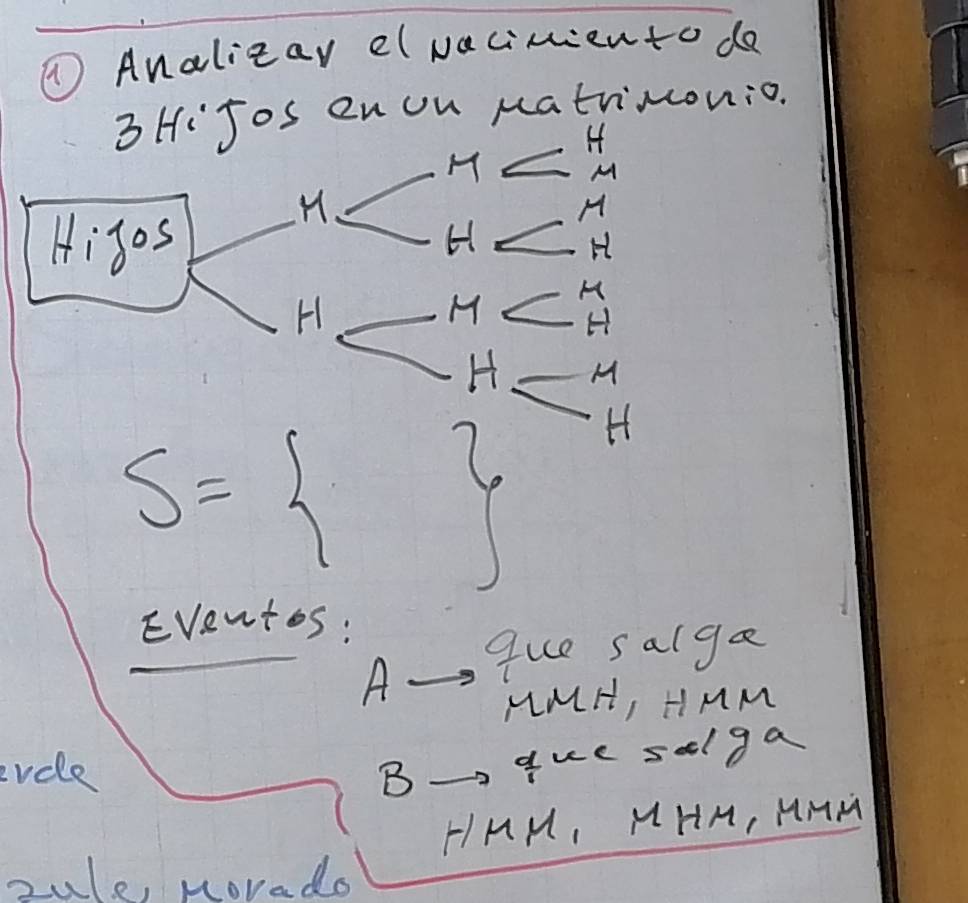 1 Analizar el nacimiento de
3 Hijos en un matrimonio.
Hijos
M M H
M
H M
H
H M M
H
H M
H
S = { }
Eventos:
A → que salga
MMH, HMM
B → que salga
HMM, MHM, MMM
zule, morado